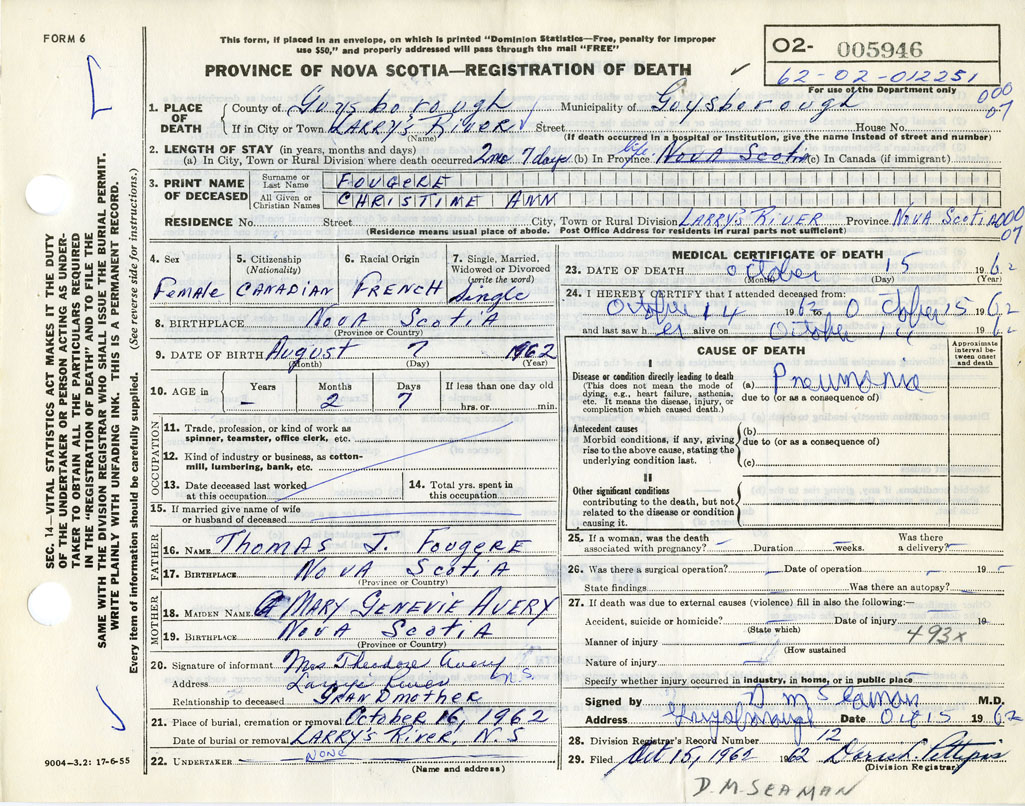 FORM 6
This form, if placed in an envelope, on which is printed "Dominion Statistics—Free, penalty for improper
use $50," and properly addressed will pass through the mail "FREE"
PROVINCE OF NOVA SCOTIA—REGISTRATION OF DEATH ✓
02- 005946
62-02-012251
For use of the Department only
000
07
1. PLACE OF DEATH
County of Guysborough Municipality of Guysborough
If in City or Town LARRY'S RIVER Street House No.
(Name) (If death occurred in a hospital or institution, give the name instead of street and number)
2. LENGTH OF STAY (in years, months and days)
(a) In City, Town or Rural Division where death occurred 2mo 7 days (b) In Province life NOVA SCOTIA (c) In Canada (if immigrant)
3. PRINT NAME OF DECEASED
Surname or Last Name FOUGERE
All Given or Christian Names CHRISTINE ANN
RESIDENCE No. Street City, Town or Rural Division LARRY'S RIVER Province NOVA SCOTIA 000
07
(Residence means usual place of abode. Post Office Address for residents in rural parts not sufficient)
4. Sex Female
5. Citizenship (Nationality) CANADIAN
6. Racial Origin FRENCH
7. Single, Married, Widowed or Divorced (write the word) Single
8. BIRTHPLACE NOVA SCOTIA
(Province or Country)
9. DATE OF BIRTH August 7 1962
(Month) (Day) (Year)
10. AGE in Years Months Days If less than one day old
– 2 7 hrs. or min.
OCCUPATION
11. Trade, profession, or kind of work as
spinner, teamster, office clerk, etc.
12. Kind of industry or business, as cotton-
mill, lumbering, bank, etc.
13. Date deceased last worked
at this occupation
14. Total yrs. spent in
this occupation
15. If married give name of wife
or husband of deceased
FATHER
16. NAME Thomas J. Fougere
17. BIRTHPLACE NOVA SCOTIA
(Province or Country)
MOTHER
18. MAIDEN NAME MARY GENEVIE AVERY
19. BIRTHPLACE NOVA SCOTIA
(Province or Country)
20. Signature of informant Mrs Theodore Avery
Address Larrys River N.S.
Relationship to deceased GRANDmother
21. Place of burial, cremation or removal October 16, 1962
Date of burial or removal LARRY'S RIVER, N.S
22. UNDERTAKER NONE
(Name and address)
9004—3.2: 17-6-55
SEC. 14—VITAL STATISTICS ACT MAKES IT THE DUTY
OF THE UNDERTAKER OR PERSON ACTING AS UNDER-
TAKER TO OBTAIN ALL THE PARTICULARS REQUIRED
IN THE "REGISTRATION OF DEATH" AND TO FILE THE
SAME WITH THE DIVISION REGISTRAR WHO SHALL ISSUE THE BURIAL PERMIT.
WRITE PLAINLY WITH UNFADING INK. THIS IS A PERMANENT RECORD.
Every item of information should be carefully supplied. (See reverse side for instructions.)
MEDICAL CERTIFICATE OF DEATH
23. DATE OF DEATH October 15 1962
(Month) (Day) (Year)
24. I HEREBY CERTIFY that I attended deceased from:
October 14 1962 to October 15 1962
and last saw her alive on October 14 1962
CAUSE OF DEATH
Approximate interval be-tween onset and death
I
Disease or condition directly leading to death
(This does not mean the mode of
dying, e.g., heart failure, asthenia,
etc. It means the disease, injury, or
complication which caused death.)
(a) Pneumonia
due to (or as a consequence of)
Antecedent causes
Morbid conditions, if any, giving
rise to the above cause, stating the
underlying condition last.
(b)
due to (or as a consequence of)
(c)
II
Other significant conditions
contributing to the death, but not
related to the disease or condition
causing it.
25. If a woman, was the death Was there
associated with pregnancy? Duration weeks. a delivery?
26. Was there a surgical operation? Date of operation 19
State findings Was there an autopsy?
27. If death was due to external causes (violence) fill in also the following:
Accident, suicide or homicide? Date of injury 19
(State which) 493x
Manner of injury
(How sustained
Nature of injury
Specify whether injury occurred in industry, in home, or in public place
Signed by D M Seaman M.D.
Address Guysborough Date Oct 15 1962
28. Division Registrar's Record Number 12
29. Filed Oct 15, 1962 1962
(Division Registrar)
D.M. SEAMAN